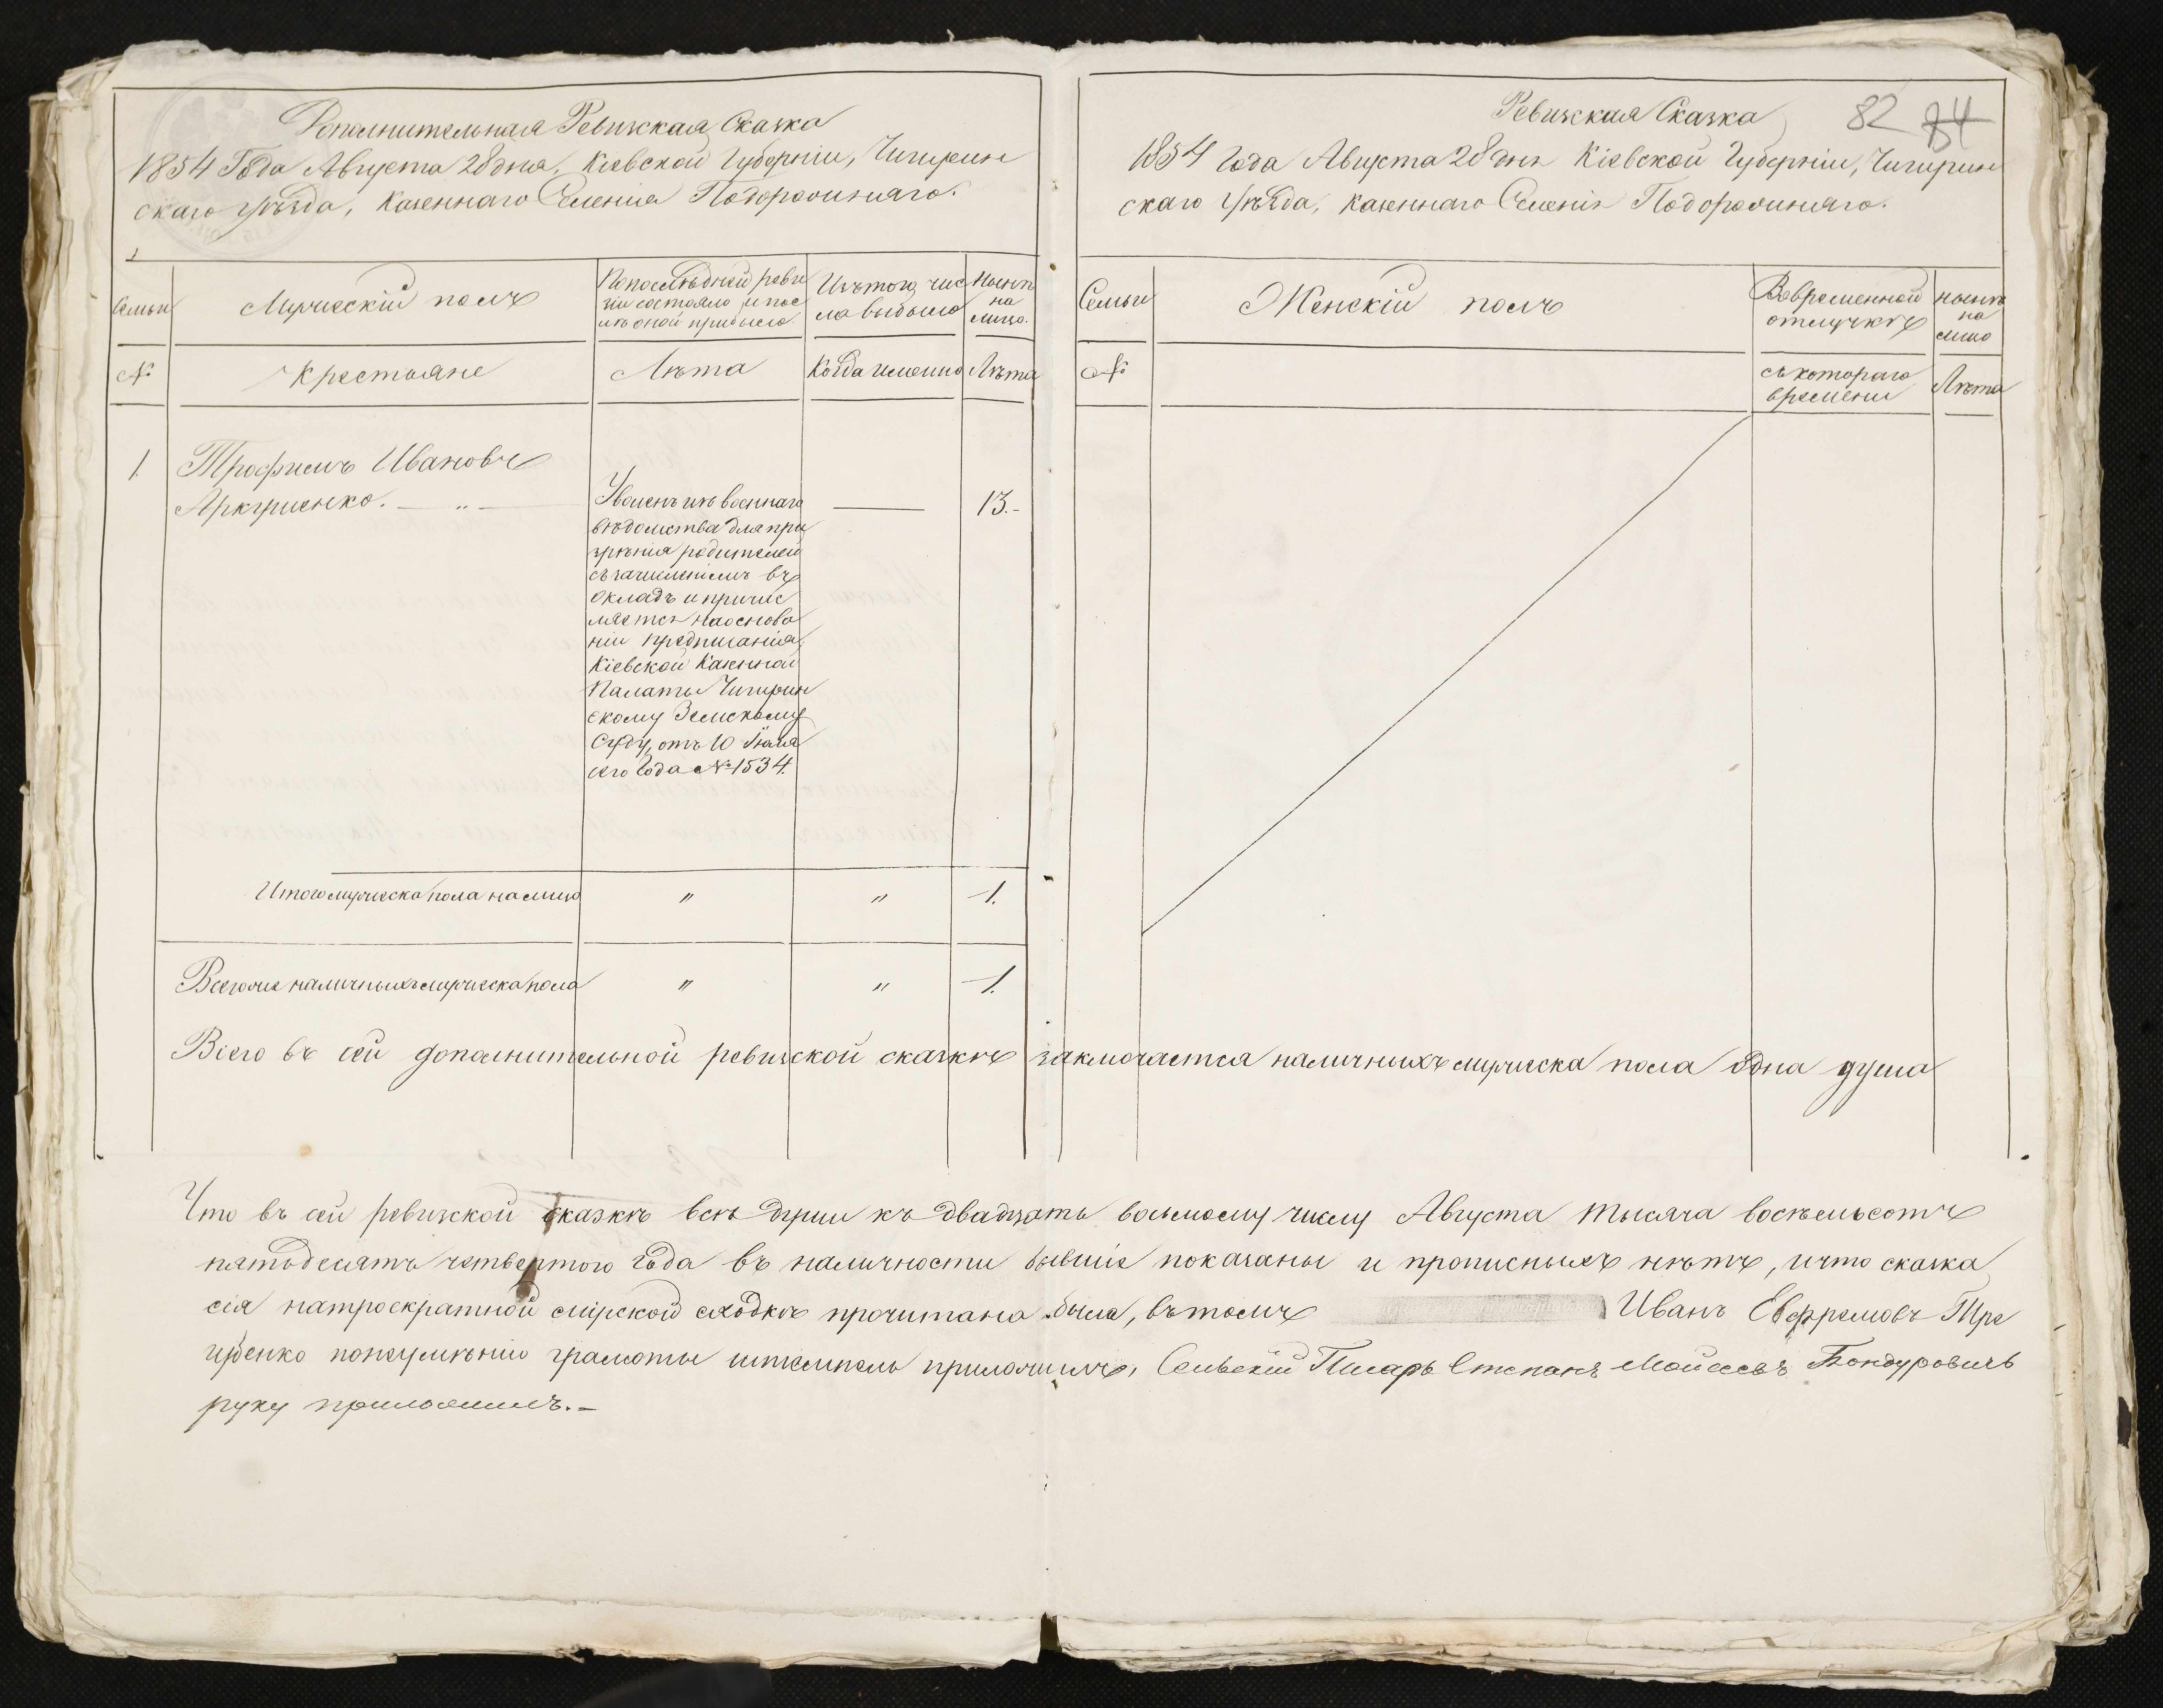 Дополнительная Ревизская Сказка
1854 Года Августа 28 дня, Кіевской Губерніи, Чигирин
скаго уѣзда, казеннаго Селенія Подорожняго.
Семьи
Мужескій полъ
По последней реви
зіи состояло и пос
лѣ оной прибыло.
Изъ того чис
ла выбыло
Нынѣ
на
лицо.
№
Крестьяне
Лѣта
Когда именно
Лѣта
1.
Трофимъ Ивановъ
13.-
Уволенъ изъ военнаго
вѣдомства для при
зрѣнія родителей
съ зачисленіемъ въ
окладъ и причис
ляется на основа
ніи предписанія
Кіевской Казенной
Палаты Чигирин
скому Земскому
Суду, отъ 10 Іюля
сего Года № 1534.
Итого мужеска пола на лицо " " 1.
Всего же наличныхъ мужеска пола " " 1.
Всего въ сей дополнительной ревизской сказкѣ заключается наличныхъ мужеска пола одна душа
Ревизская Сказка
82 84
1854 Года Августа 28 дня Кіевской Губерніи, Чигирин
скаго уѣзда, казеннаго Селенія Подорожняго.
Семьи
Женскій полъ
Во временной
отлучкѣ
нынѣ
на
лицо
№
съ котораго
времени
Лѣта
Что въ сей ревизской сказкѣ всѣ души къ двадцать восьмому числу Августа тысяча восемьсотъ
пятьдесятъ четвертого года въ наличности бывшіе показаны и прописныхъ нѣтъ, и что сказка
сія на троекратной мірской сходкѣ прочитана была, въ томъ Иванъ Ефремовъ
по неумѣнію грамоты штемпель приложилъ, Сельскій Писарь Степанъ Мойсеевъ Бондуровичъ
руку приложилъ.-